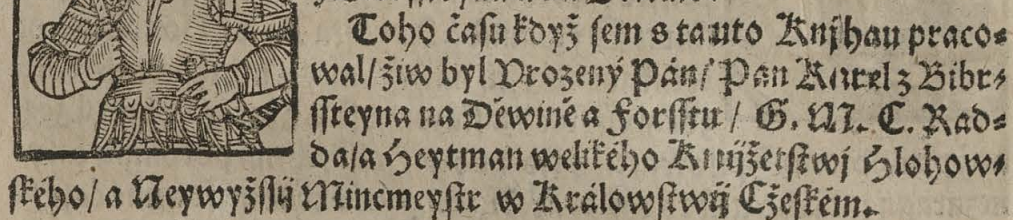 Toho času když sem s tauto Knjhau praco-
wal/ žiw byl Vrozený Pán/ Pan Karel z Bibr-
ssteyna na Děwině a Forsstu / G. M. C. Rad-
da/a Heytman welikého Knijžetstwj Hlohow-
ského/ a Neywyžssij Mincmeystr w Králowstwij Cžeském.